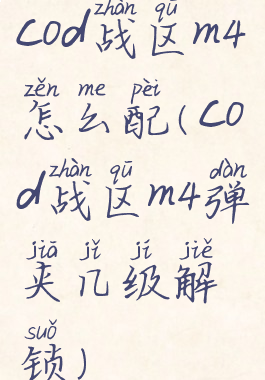 zhàn qū
cod战区m4
zěn me pèi
怎么配(co
zhàn qū dàn
d战区m4弹
jiā jǐ jí jiě
夹几级解
suǒ
锁)